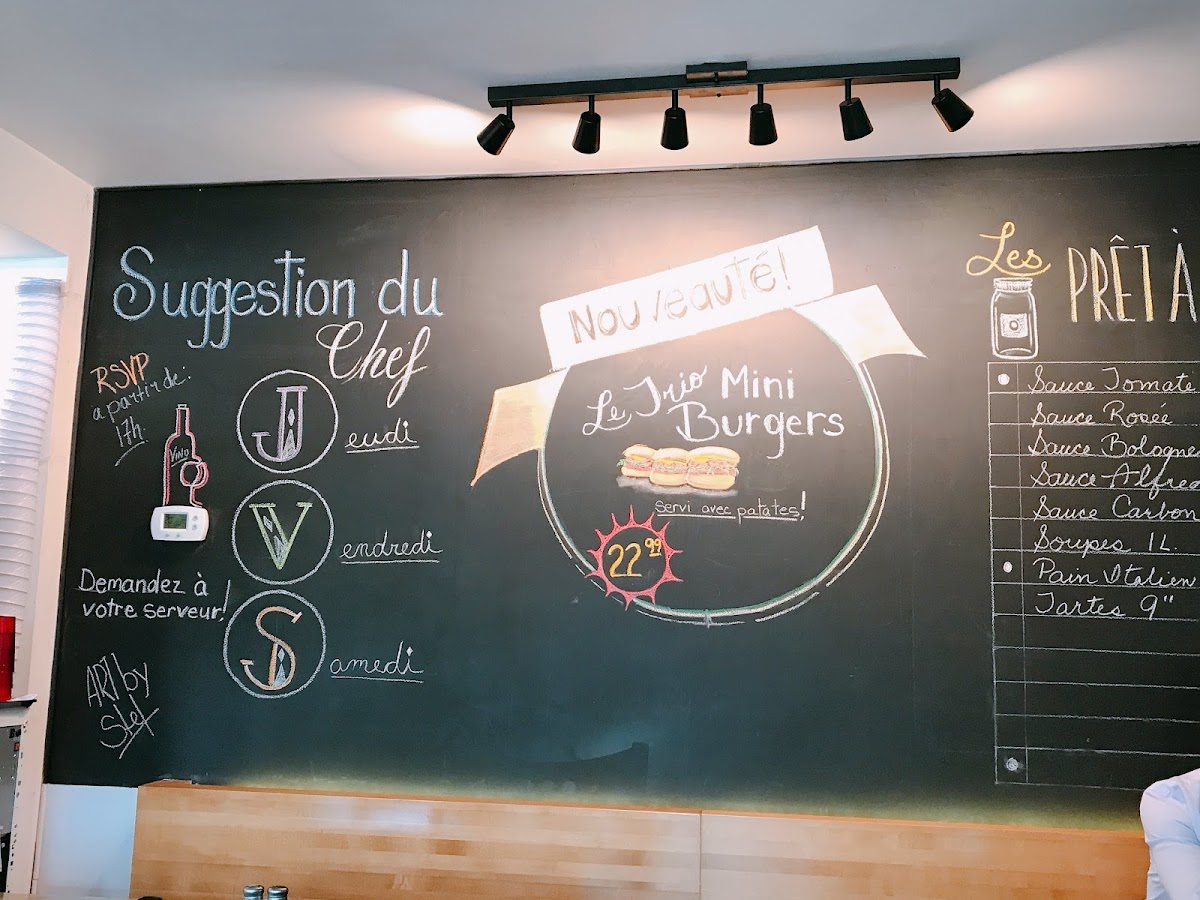 Suggestion du
Chef
RSVP
a partir de:
17h.
Vino
Jeudi
Vendredi
Samedi
Demandez à
votre serveur!
ART by
Stef
Nouveauté!
Le Trio Mini
Burgers
servi avec patates!
22.99
Les PRÊT À
Sauce Tomate
Sauce Rosée
Sauce Bologne
Sauce Alfred
Sauce Carbon
Soupes 1L.
Pain Italien
Tartes 9"